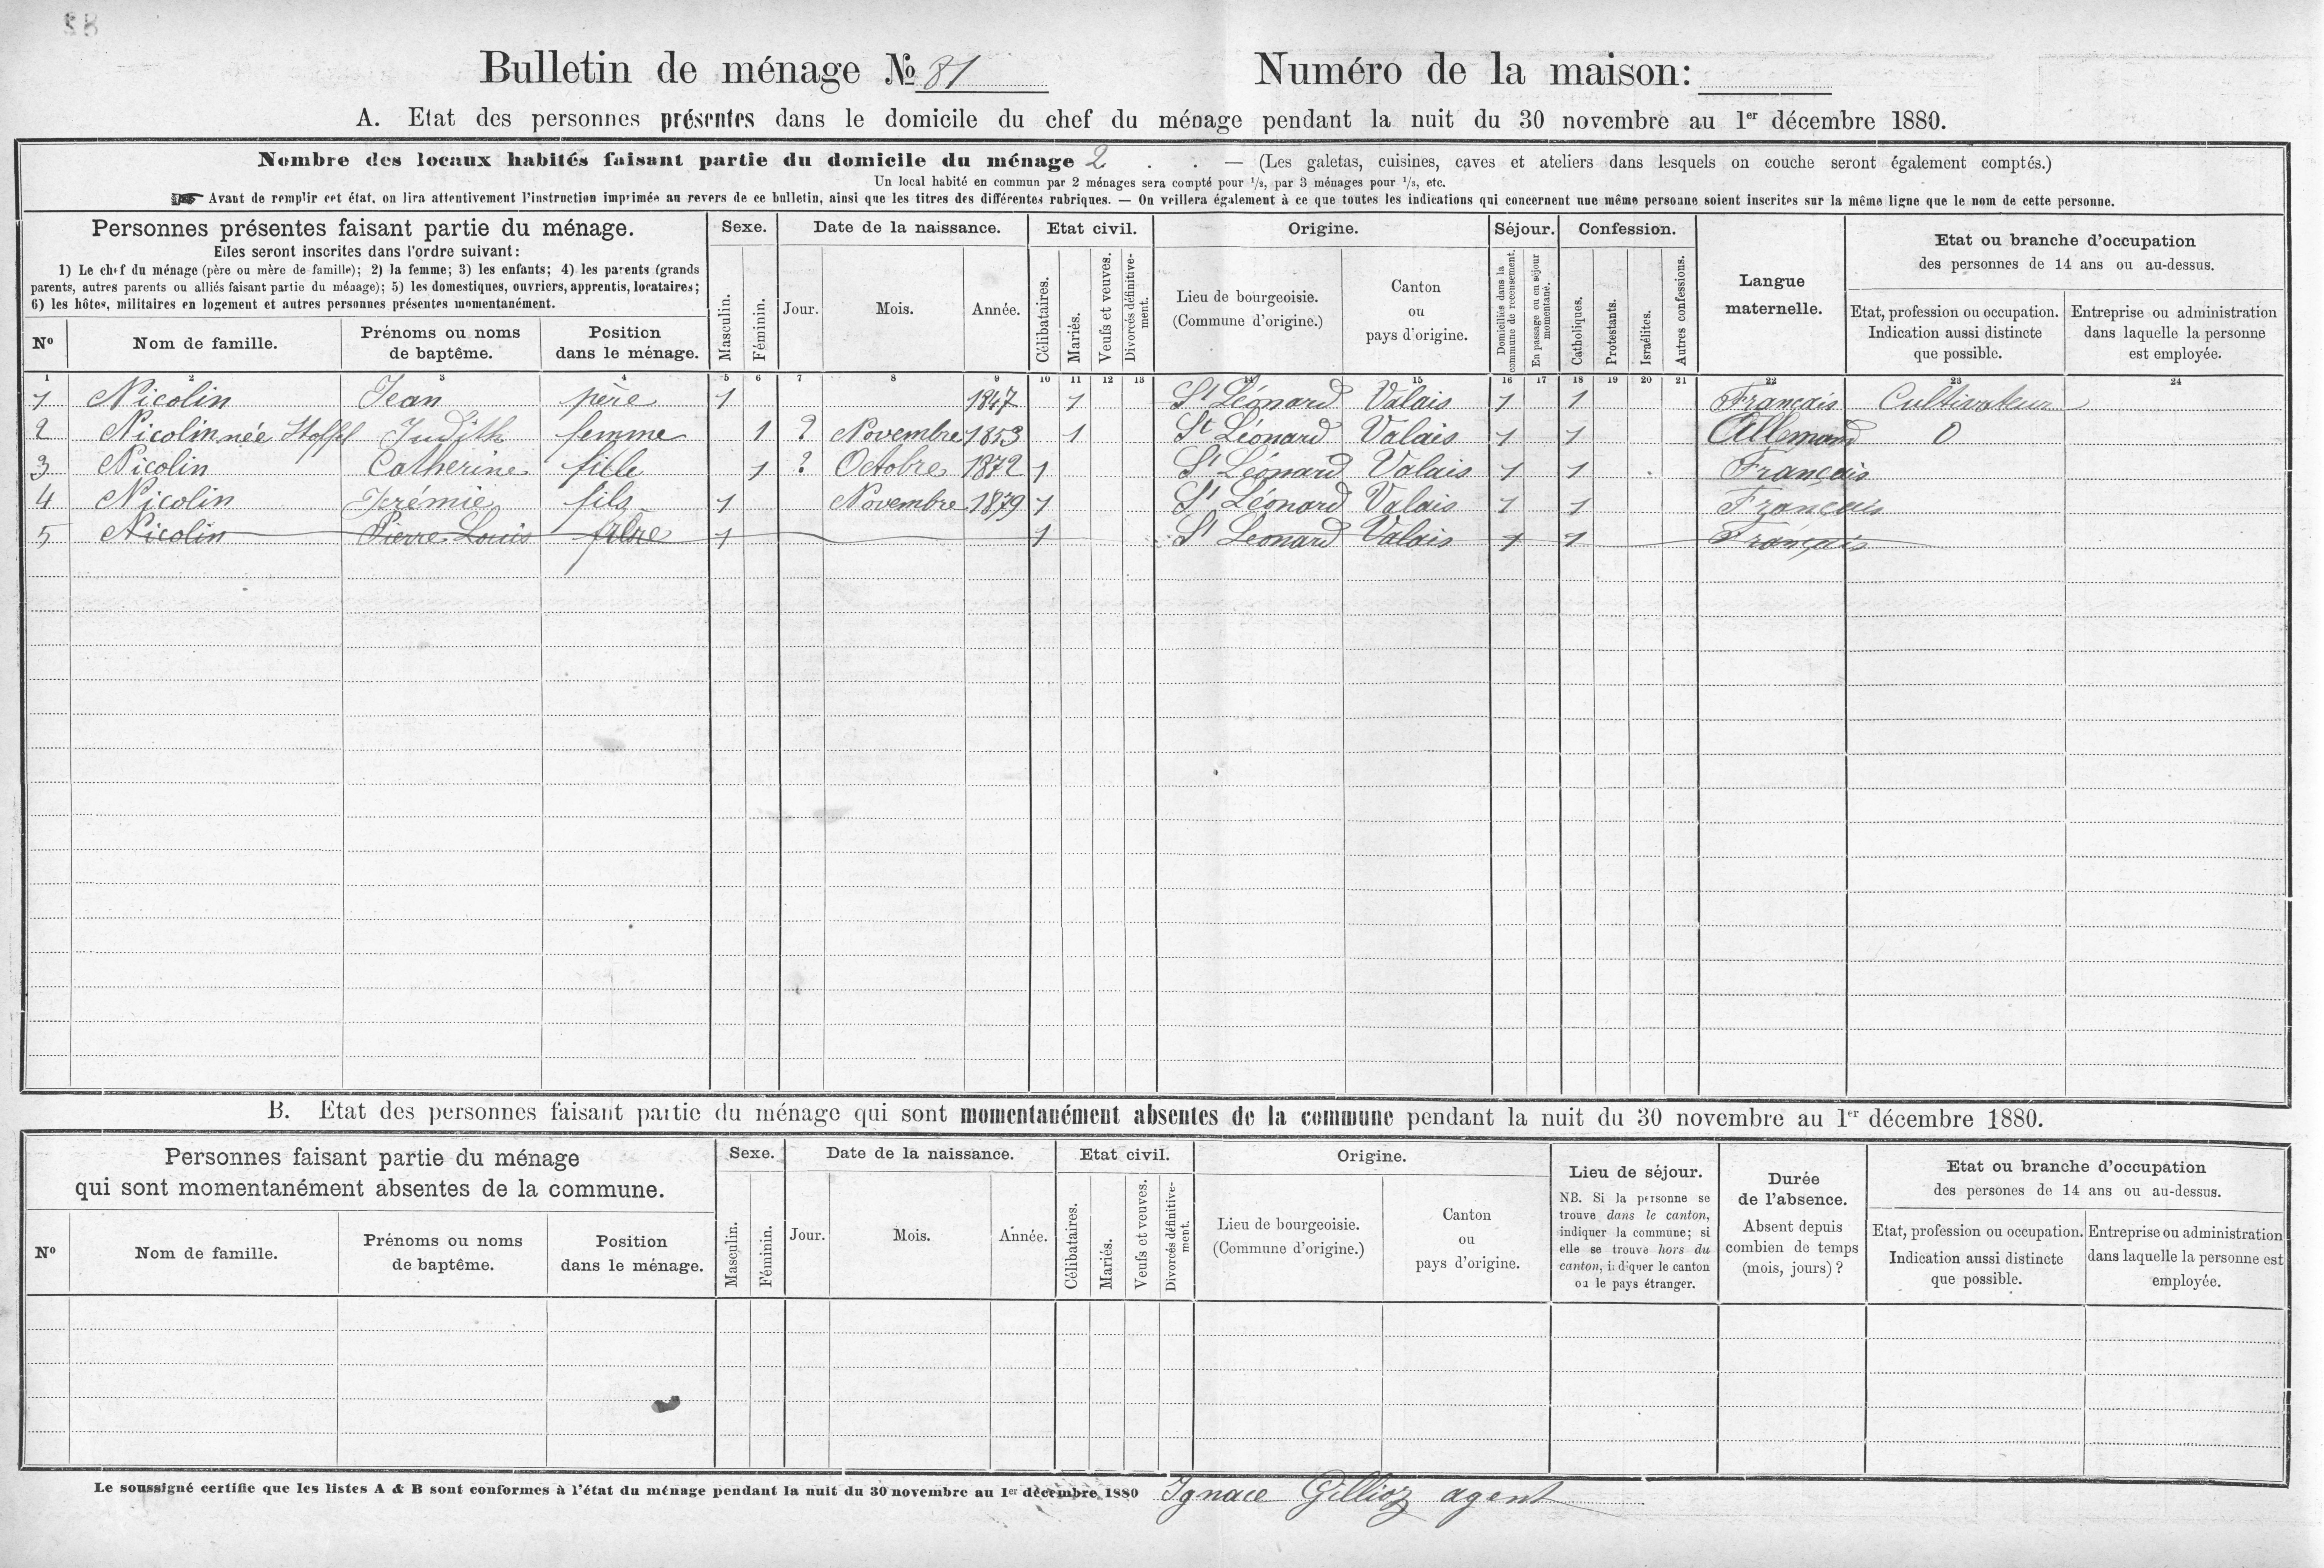 Bulletin de ménage No 81
Numéro de la maison:
A. Etat des personnes présentes dans le domicile du chef du ménage pendant la nuit du 30 novembre au 1er décembre 1880.
Nombre des locaux habités faisant partie du domicile du ménage 2 . . — (Les galetas, cuisines, caves et ateliers dans lesquels on couche seront également comptés.)
Un local habité en commun par 2 ménages sera compté pour 1/2, par 3 ménages pour 1/3, etc.
Avant de remplir cet état, on lira attentivement l'instruction imprimée au revers de ce bulletin, ainsi que les titres des différentes rubriques. — On veillera également à ce que toutes les indications qui concernent une même personne soient inscrites sur la même ligne que le nom de cette personne.
Personnes présentes faisant partie du ménage.
Elles seront inscrites dans l'ordre suivant:
1) Le chef du ménage (père ou mère de famille); 2) la femme; 3) les enfants; 4) les parents (grands
parents, autres parents ou alliés faisant partie du ménage); 5) les domestiques, ouvriers, apprentis, locataires;
6) les hôtes, militaires en logement et autres personnes présentes momentanément.
No
Nom de famille.
Prénoms ou noms
de baptême.
Position
dans le ménage.
Sexe.
Masculin.
Féminin.
Date de la naissance.
Jour.
Mois.
Année.
Etat civil.
Célibataires.
Mariés.
Veufs et veuves.
Divorcés définitive-
ment.
Origine.
Lieu de bourgeoisie.
(Commune d'origine.)
Canton
ou
pays d'origine.
Séjour.
Domiciliés dans la
commune de recensement.
En passage ou en séjour
momentané.
Confession.
Catholiques.
Protestants.
Israélites.
Autres confessions.
Langue
maternelle.
Etat ou branche d'occupation
des personnes de 14 ans ou au-dessus.
Etat, profession ou occupation.
Indication aussi distincte
que possible.
Entreprise ou administration
dans laquelle la personne
est employée.
1 2 3 4 5 6 7 8 9 10 11 12 13 14 15 16 17 18 19 20 21 22 23 24
1 Nicolin Jean père 1 1847 1 St Léonard Valais 1 1 Français Cultivateur
2 Nicolin née Stoffel Judith femme 1 ? Novembre 1853 1 St Léonard Valais 1 1 Allemand 0
3 Nicolin Catherine fille 1 ? Octobre 1872 1 St Léonard Valais 1 1 Français
4 Nicolin Jérémie fils 1 Novembre 1879 1 St Léonard Valais 1 1 Français
5 Nicolin Pierre Louis 1 1 St Léonard Valais 1 1 Français
B. Etat des personnes faisant partie du ménage qui sont momentanément absentes de la commune pendant la nuit du 30 novembre au 1er décembre 1880.
Personnes faisant partie du ménage
qui sont momentanément absentes de la commune.
No
Nom de famille.
Prénoms ou noms
de baptême.
Position
dans le ménage.
Sexe.
Masculin.
Féminin.
Date de la naissance.
Jour.
Mois.
Année.
Etat civil.
Célibataires.
Mariés.
Veufs et veuves.
Divorcés définitive-
ment.
Origine.
Lieu de bourgeoisie.
(Commune d'origine.)
Canton
ou
pays d'origine.
Lieu de séjour.
NB. Si la personne se
trouve dans le canton,
indiquer la commune; si
elle se trouve hors du
canton, indiquer le canton
ou le pays étranger.
Durée
de l'absence.
Absent depuis
combien de temps
(mois, jours)?
Etat ou branche d'occupation
des persones de 14 ans ou au-dessus.
Etat, profession ou occupation.
Indication aussi distincte
que possible.
Entreprise ou administration
dans laquelle la personne est
employée.
Le soussigné certifie que les listes A & B sont conformes à l'état du ménage pendant la nuit du 30 novembre au 1er décembre 1880 Ignace Gillioz agent